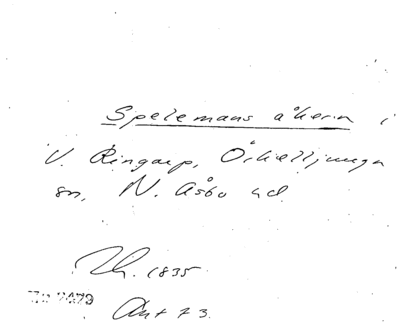 Spelemans åkern i
V. Ringarp, Örkelljunga
sn, N. Åsbo hd.
1835.
2479
Ant 73.